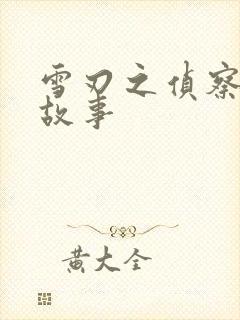 雪刃之偵察
故事
黄大全